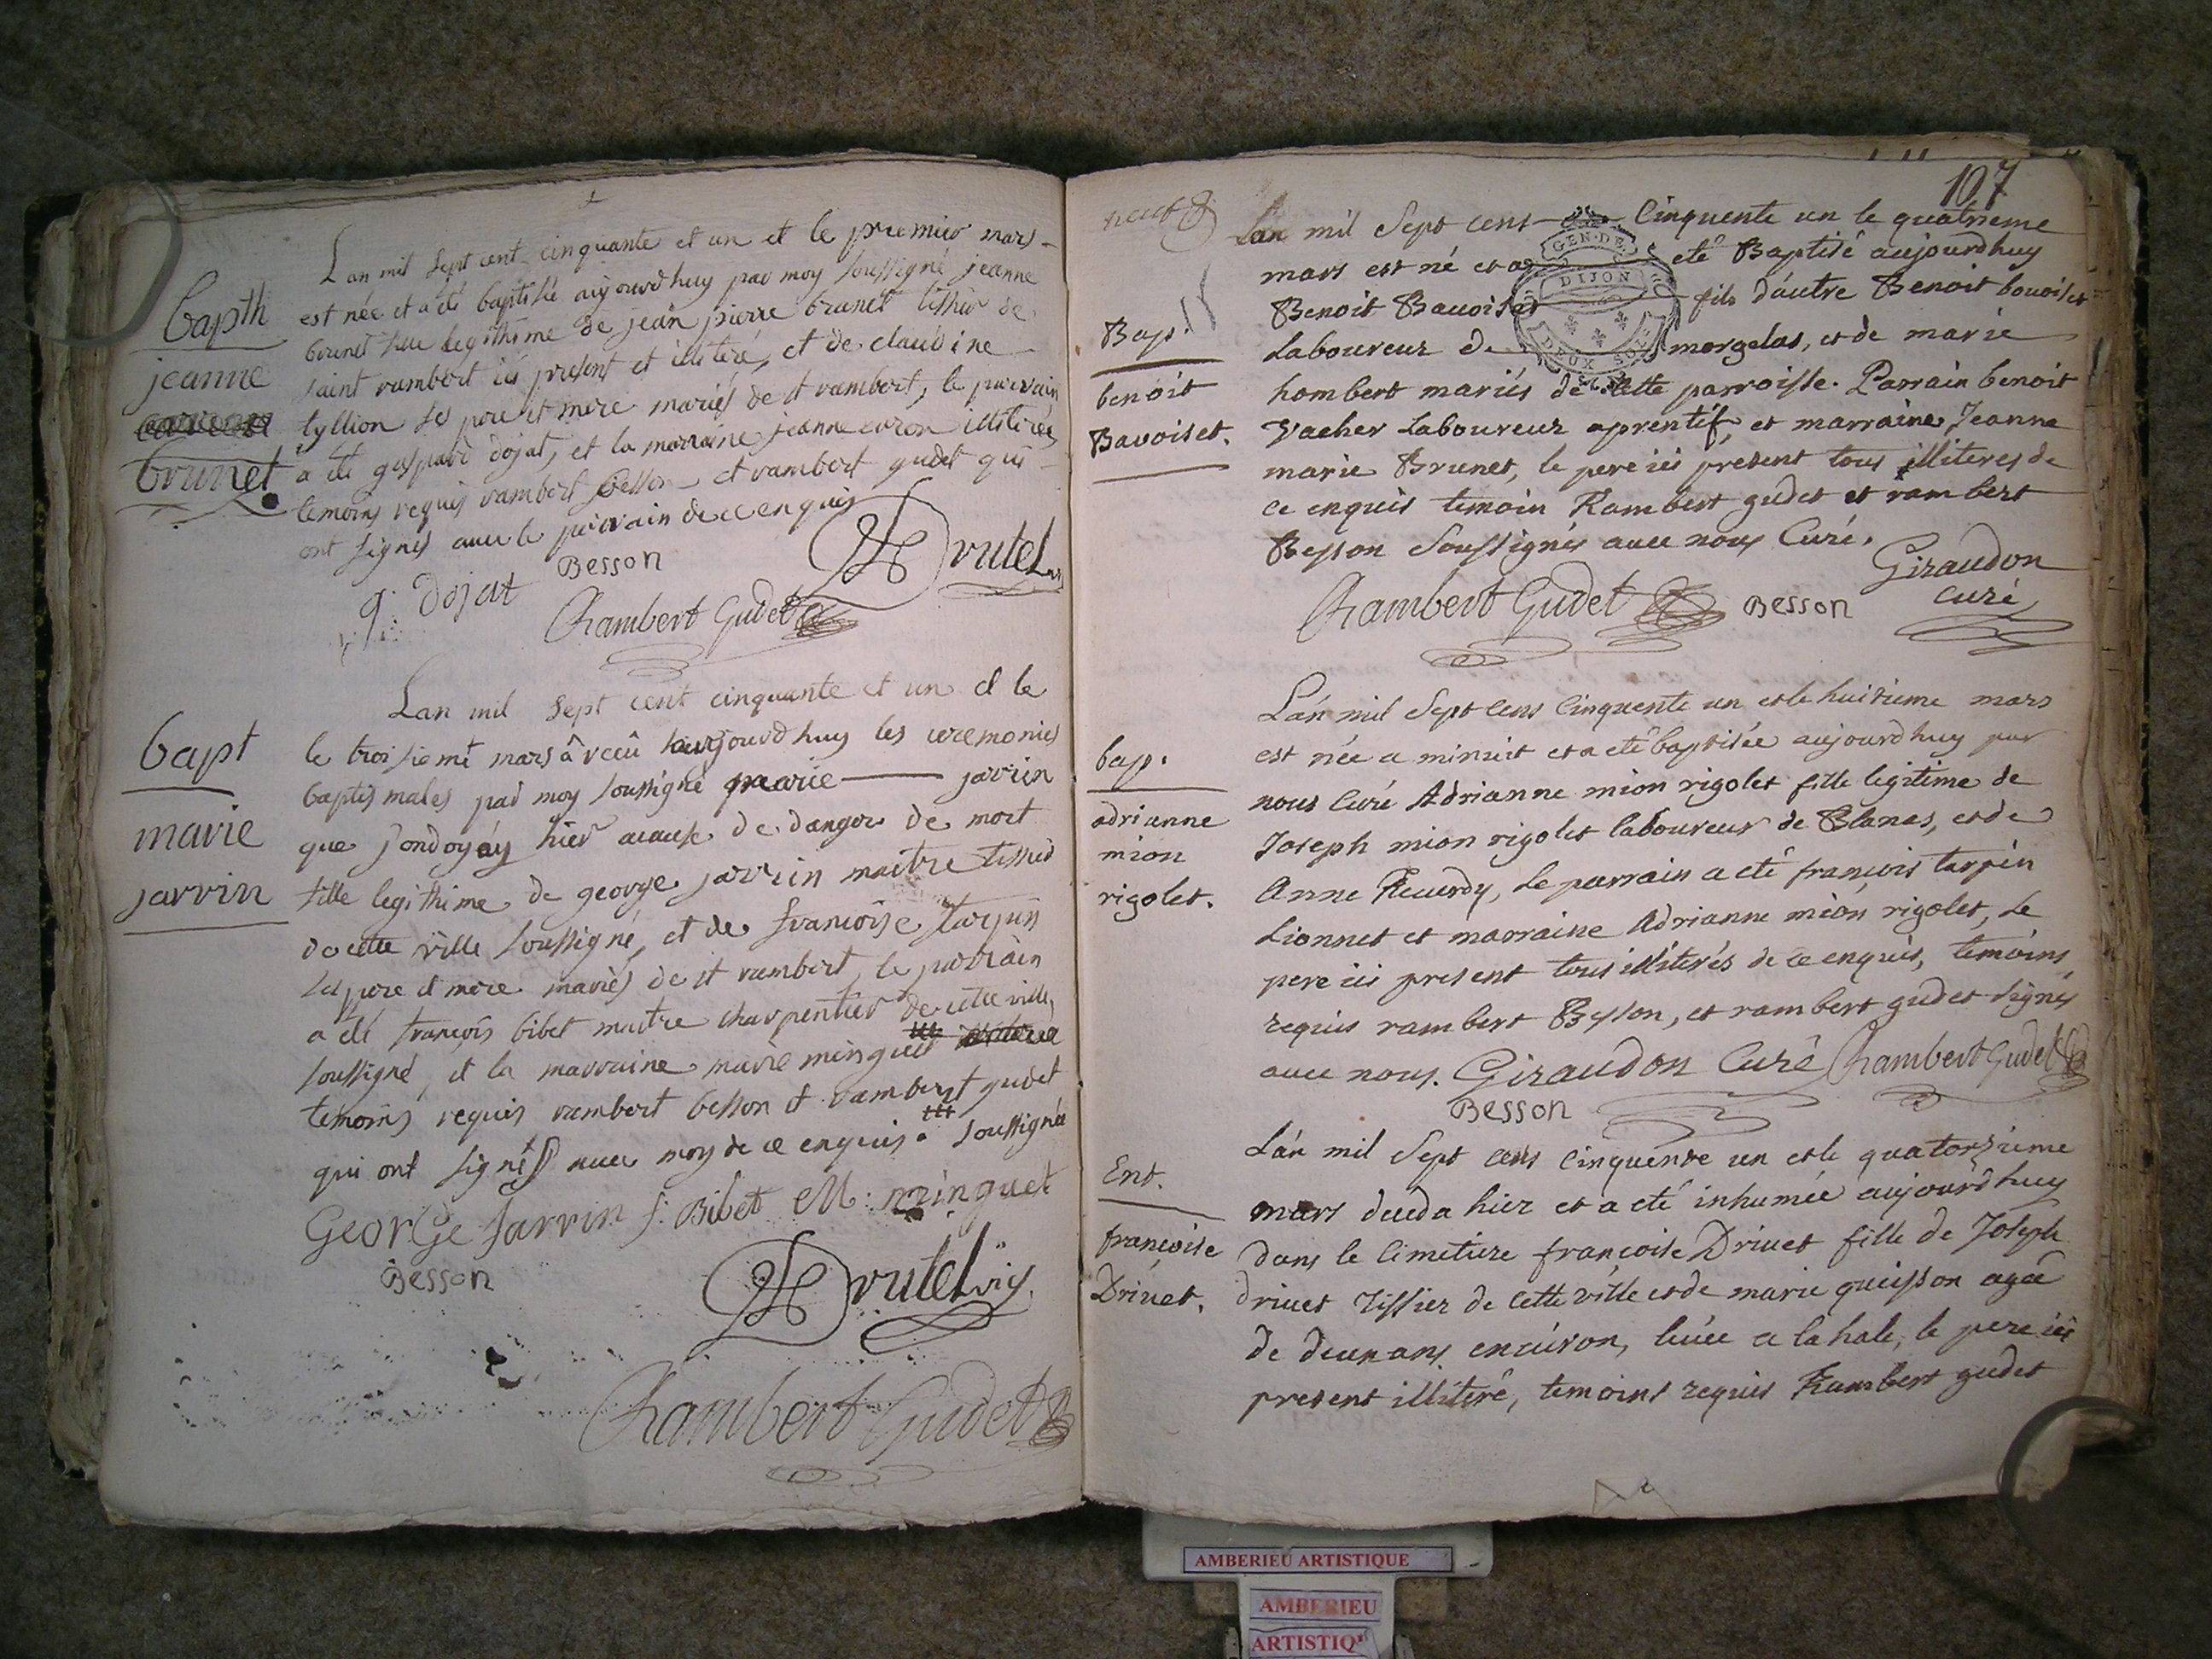 Lan mil sept cent cinquante et un et le premier mars
est née et a été baptisée aujourdhuy par moy soussigné jeanne
brunet fille legithime de jean pierre brunet tissier de
saint rambert ici present et illitéré, et de claudine
tyllion ses pere et mere mariés de st rambert, le parrain
a été gaspard dojat, et la marraine jeanne illitérée
temoins requis rambert besson et rambert gudet qui
ont signés avec le parrain de ce enquis
Bapth
jeanne
brunet
Besson
g. Dojat
Rambert Gudet
Lan mil sept cent cinquante et un et le
le troisieme mars â recû aujourdhuy les ceremonies
baptismales par moy soussigné marie jarrin
que jondoyáy hier acause de danger de mort
fille legithime de george jarrin maitre tissier
de cette ville soussigné, et de francoise tarpin
ses pere et mere mariés de st rambert, le parrain
a été françois bibet maitre charpentier de cette ville
soussigné, et la marraine marie minguet
temoins requis rambert besson et rambert gudet
qui ont signés avec moy de ce enquis. soussignée
bapt
marie
jarrin
George Jarrin f: Bibet M: minguet
Besson
Rambert Gudet
107
neuf
Lan mil Sept cens Cinquente un le quatrieme
mars est né et a eté Baptisé aujourdhuy
Benoit Bavoiset fils dautre Benoit bavoiset
Laboureur de morgelas, et de marie
hombert mariés de cette parroisse. Parrain benoit
Vacher Laboureur aprentif, et marraine Jeanne
marie Brunet, le pere ici present tous illiteres de
ce enquis temoin Rambert gudet et rambert
Besson Soussignés avec nous Curé.
GEN. DE
DIJON
DEUX SOLS
Bap.
benoit
Bavoiset.
Giraudon
curé
Rambert Gudet Besson
Lán mil Sept Cens Cinquente un et le huitieme mars
est née a minuit et a eté baptisée aujourdhuy par
nous Curé Adrianne mion rigolet fille legitime de
Joseph mion rigolet laboureur de Blanas, et de
Anne Reverdy, Le parrain a eté françois tarpin
Lionnet et marraine Adrianne mion rigolet, Le
pere ici present tous illiterés de ce enquis, temoins
requis rambert Besson, et rambert gudet signés
avec nous. Giraudon Curé Rambert Gudet
Besson
bap.
adrianne
mion
rigolet.
Lán mil Sept cens Cinquente un et le quatorsieme
mars deceda hier et a eté inhumée aujourdhuy
dans le Cimetiere françoise Drivet fille de Joseph
drivet Tissier de Cette ville et de marie queisson agée
de deux ans environ, levée a la hale, le pere ici
present illiteré, temoins requis Rambert gudet
Ent.
françoise
Drivet.
AMBERIEU ARTISTIQUE
AMBERIEU
ARTISTIQ